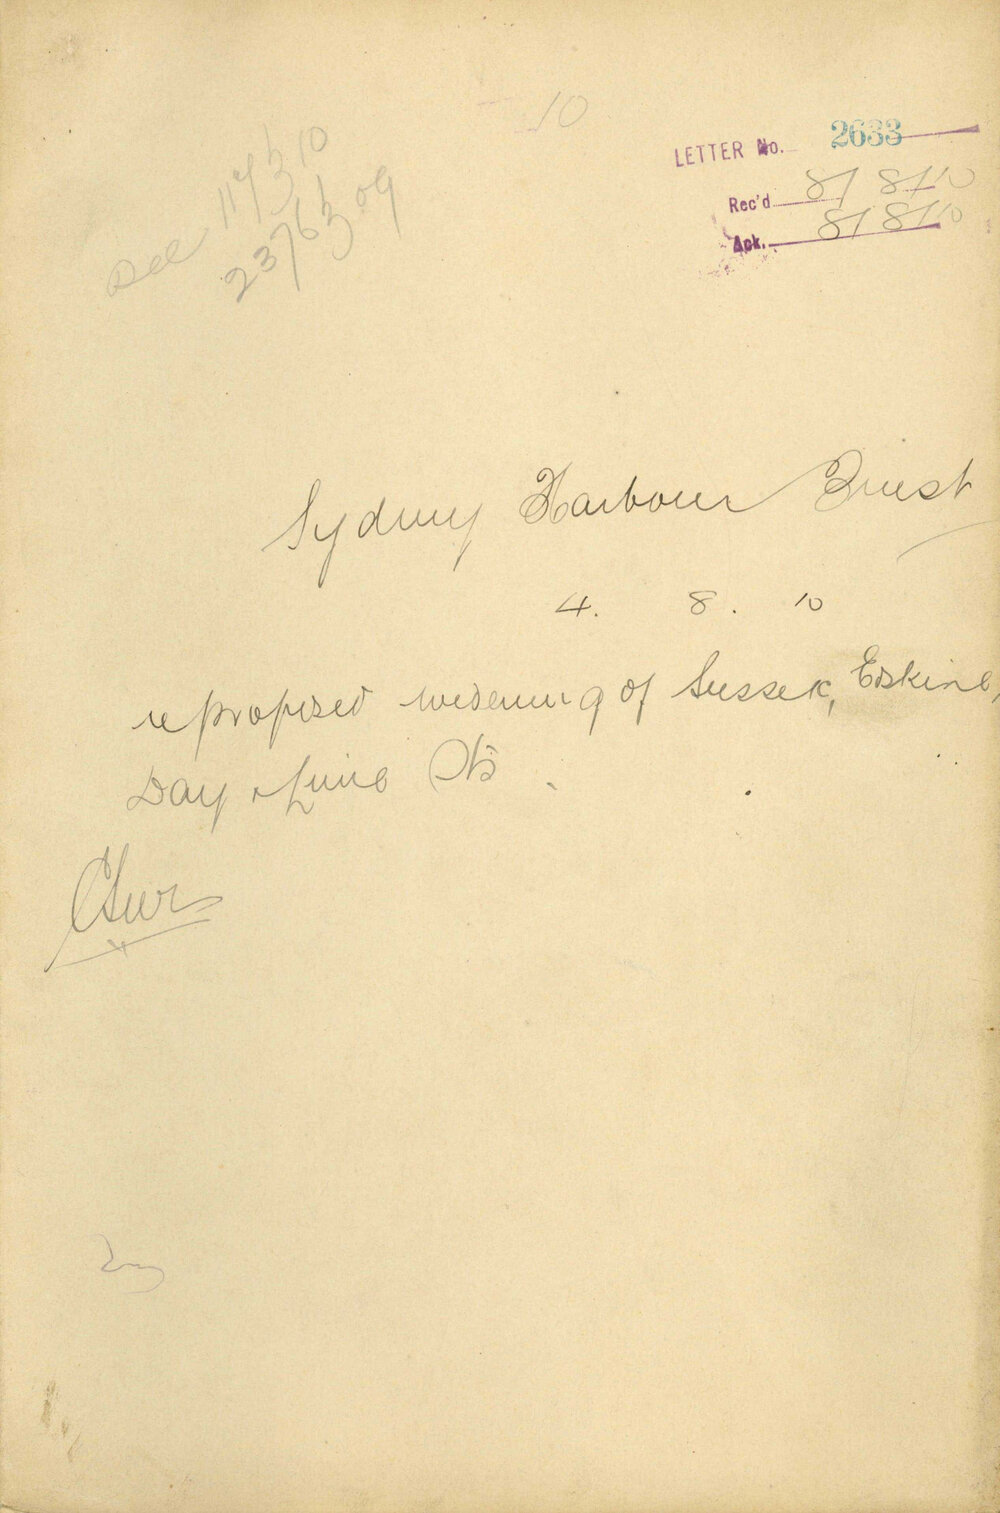 10
LETTER No. 2633
Rec'd 8/8/10
Ack. 8/8/10
See 1173/10
2376/09
Sydney Harbour Trust
4. 8. 10
re proposed widening of Sussex, Erskine,
Day & Lime Sts.